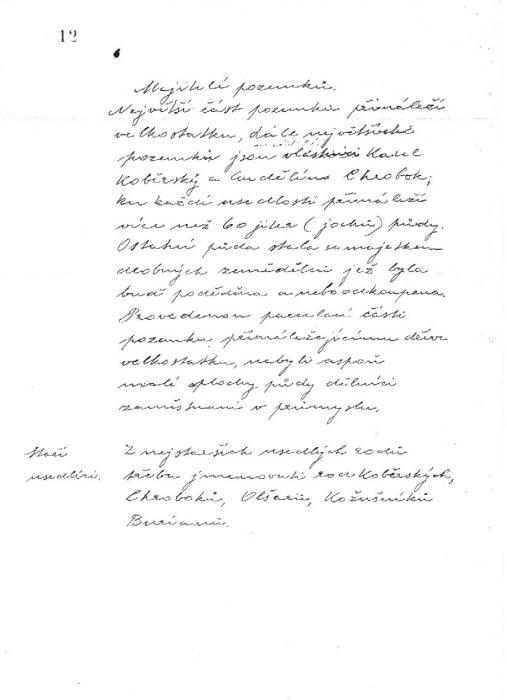 12
Majitelé pozemků.
Největší část pozemků přináleží
velkostatku, dále největšími
pozemků jsou vlastníci Karel
Koběrský a Anděline Chrobok;
ku každé usedlosti přináleží
více než 60 jiter (jochů) půdy.
Ostatní půda stala se majetkem
drobných zemědělců jež byla
buď poděděna a nebo odkoupena.
Provedenou parcelací části
pozemku přináležejícímu dříve
velkostatku, nabyli aspoň
malé plochy půdy dělníci
zaměstnaní v průmyslu.
Staří
usedlíci.
Z nejstarších usedlých rodů
třeba jmenovati rod Koběrských,
Chroboků, Olšarů, Kožušníků
Burianů.